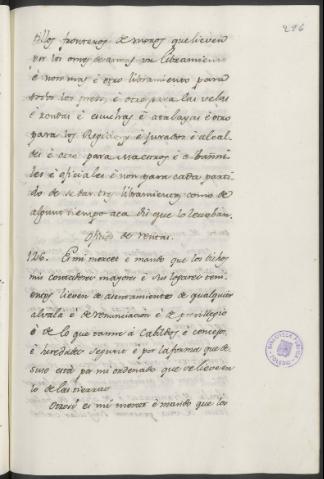 296
villas fronteros de moros que lieven
por los omes de armas un libramiento
è non mas è otro libramiento para
todos los peon, è otro para las velas
è rondas è escuchas è atalayas è otro
para los Regidores è Jurados è alcal-
des è otro para Maestros è albanni-
les è oficiales è non para cada parti-
do de se dar tres libramientos como de
algunt tiempo aca diz que lo levaban.
Oficio de rentas.
126. Es mi merced è mando que los dichos
mis contadores mayores è sus logares teni-
entes lieven de asentamientos de qualquier
alvala è de renunciacion è de previllegio
è de lo que tanne à Cabildos è concejo
è heredades segunt è por la forma que de
suso està por mi ordenado que se lieve en
lo de las tierras
Otrosi es mi merced è mando que los
BIBLIOTECA PUBLICA
TOLEDO